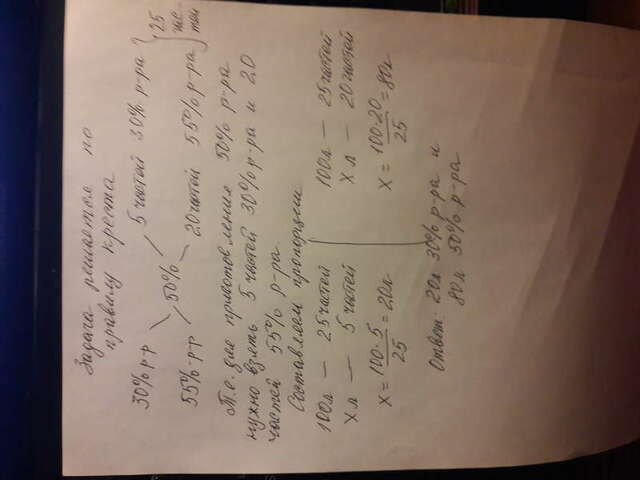 Задача решается по
правилу креста
30% р-р 5 частей 30% р-ра
50%
55% р-р 20 частей 55% р-ра
25 частей
Т.е. для приготовления 50% р-ра
нужно взять 5 частей 30% р-ра и 20
частей 55% р-ра.
Составляем пропорции
100л — 25 частей 100л — 25 частей
Xл — 5 частей Xл — 20 частей
X = 100·5/25 = 20л X = 100·20/25 = 80л
Ответ: 20л 30% р-ра и
80л 50% р-ра